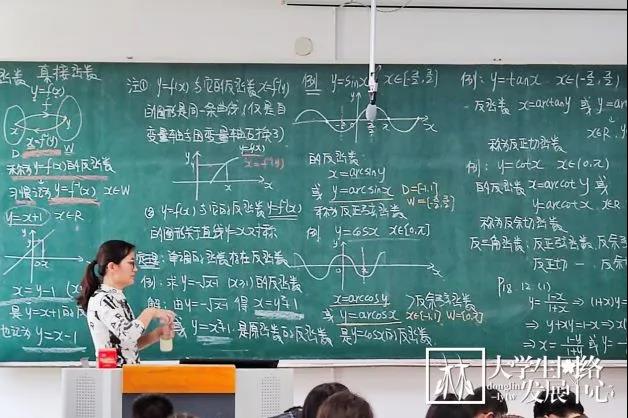 函数 直接函数
y=f(x)
x=f⁻¹(y)
D W
称为y=f(x)的反函数
习惯记为y=f⁻¹(x) x∈W
y=x+1 x∈R
x=y-1
是y=x+1的反
也记为y=x-1
注① y=f(x)与它的反函数x=f⁻¹(y)
的图形是同一条曲线(仅是自
变量轴与因变量轴互换了)
y=f(x)
x=f⁻¹(y)
② y=f(x)与它的反函数y=f⁻¹(x)
的图形关于直线y=x对称
定理:单调函数 存在反函数
例:求y=√x-1 (x≥1)的反函数
解:由y=√x-1 得 x=y²+1
或 y=x²+1 是原函数的反函数
例 y=sinx x∈[-π/2,π/2]
的反函数:
x=arcsiny
或 y=arcsinx D=[-1,1]
W=[-π/2,π/2]
称为反正弦函数
例 y=cosx x∈[0,π]
x=arccosy
或 y=arccosx >反余弦函数
x∈[-1,1] W=[0,π]
是y=cosx的反函数
例:y=tanx x∈(-π/2,π/2)
反函数 x=arctany 或 y=ar
x∈R
称为反正切函数
例:y=cotx x∈(0,π)
的反函数 x=arccoty 或
y=arccotx x∈R
称为反余切函数
反三角函数:反正弦函数、反余弦
反正切
P18 12 (1)
y=1-x/1+x ⇒ (1+x)y=
⇒ y+xy=1-x ⇒ x(
⇒ x=1-y/1+y 或 y=
大学生网络
发展中心
林
donglin
-lytw